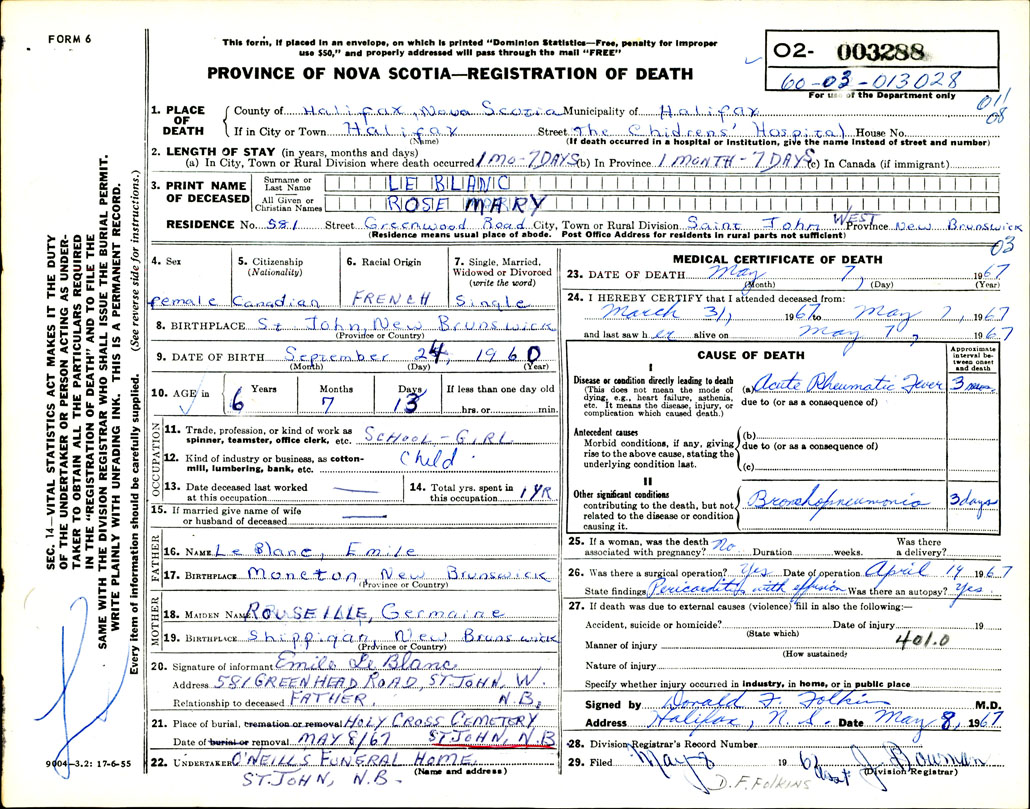 FORM 6
This form, if placed in an envelope, on which is printed "Dominion Statistics—Free, penalty for improper
use $50," and properly addressed will pass through the mail "FREE"
PROVINCE OF NOVA SCOTIA—REGISTRATION OF DEATH
02- 003288
60-03-013028
For use of the Department only
011
08
1. PLACE OF DEATH
County of Halifax, Nova Scotia Municipality of Halifax
If in City or Town Halifax Street The Chidrens' Hospital House No.
(Name) (If death occurred in a hospital or institution, give the name instead of street and number)
2. LENGTH OF STAY (in years, months and days)
(a) In City, Town or Rural Division where death occurred 1 MO-7 DAYS (b) In Province 1 MONTH-7 DAYS (c) In Canada (if immigrant)
3. PRINT NAME OF DECEASED
Surname or Last Name LE BLANC
All Given or Christian Names ROSE MARY
RESIDENCE No. 581 Street Greenwood Road City, Town or Rural Division Saint John WEST Province New Brunswick
(Residence means usual place of abode. Post Office Address for residents in rural parts not sufficient)
03
4. Sex
female
5. Citizenship
(Nationality)
Canadian
6. Racial Origin
FRENCH
7. Single, Married,
Widowed or Divorced
(write the word)
Single
8. BIRTHPLACE St John, New Brunswick
(Province or Country)
9. DATE OF BIRTH September 24, 1960
(Month) (Day) (Year)
10. AGE in Years Months Days If less than one day old
6 7 13 hrs. or min.
OCCUPATION
11. Trade, profession, or kind of work as
spinner, teamster, office clerk, etc. SCHOOL-GIRL
12. Kind of industry or business, as cotton-
mill, lumbering, bank, etc. Child
13. Date deceased last worked
at this occupation
14. Total yrs. spent in
this occupation 1 YR
15. If married give name of wife
or husband of deceased
FATHER
16. NAME Le Blanc, Emile
17. BIRTHPLACE Moncton, New Brunswick
(Province or Country)
MOTHER
18. MAIDEN NAME ROUSEILLE, Germaine
19. BIRTHPLACE Shippigan, New Brunswick
(Province or Country)
20. Signature of informant Emile Le Blanc
Address 581 GREENHEAD ROAD, ST. JOHN, W.
Relationship to deceased FATHER N.B.
21. Place of burial, cremation or removal HOLY CROSS CEMETERY
Date of burial or removal MAY 8/67 ST JOHN, N.B
22. UNDERTAKER O'NEILL'S FUNERAL HOME
(Name and address)
ST. JOHN, N.B.
MEDICAL CERTIFICATE OF DEATH
23. DATE OF DEATH May 7, 1967
(Month) (Day) (Year)
24. I HEREBY CERTIFY that I attended deceased from:
March 31, 1967 to May 7, 1967
and last saw her alive on May 7, 1967
CAUSE OF DEATH
Approximate
interval be-
tween onset
and death
I
Disease or condition directly leading to death
(This does not mean the mode of
dying, e.g., heart failure, asthenia,
etc. It means the disease, injury, or
complication which caused death.)
(a) Acute Rheumatic Fever 3 mos.
due to (or as a consequence of)
Antecedent causes
Morbid conditions, if any, giving
rise to the above cause, stating the
underlying condition last.
(b)
due to (or as a consequence of)
(c)
II
Other significant conditions
contributing to the death, but not
related to the disease or condition
causing it.
Bronchopneumonia 3 days
25. If a woman, was the death No Was there
associated with pregnancy? Duration weeks. a delivery?
26. Was there a surgical operation? Yes Date of operation April 19 1967
State findings Pericarditis with effusion Was there an autopsy? Yes.
27. If death was due to external causes (violence) fill in also the following:—
Accident, suicide or homicide? Date of injury 19
(State which)
Manner of injury 401.0
(How sustained)
Nature of injury
Specify whether injury occurred in industry, in home, or in public place
Signed by Donald F. Folkins M.D.
Address Halifax, N.S. Date May 8, 1967
28. Division Registrar's Record Number
29. Filed May 8 1967 J. Bowman
(Division Registrar)
D.F. FOLKINS
SEC. 14—VITAL STATISTICS ACT MAKES IT THE DUTY
OF THE UNDERTAKER OR PERSON ACTING AS UNDER-
TAKER TO OBTAIN ALL THE PARTICULARS REQUIRED
IN THE "REGISTRATION OF DEATH" AND TO FILE THE
SAME WITH THE DIVISION REGISTRAR WHO SHALL ISSUE THE BURIAL PERMIT.
WRITE PLAINLY WITH UNFADING INK. THIS IS A PERMANENT RECORD.
Every item of information should be carefully supplied. (See reverse side for instructions.)
9004-3.2: 17-6-55